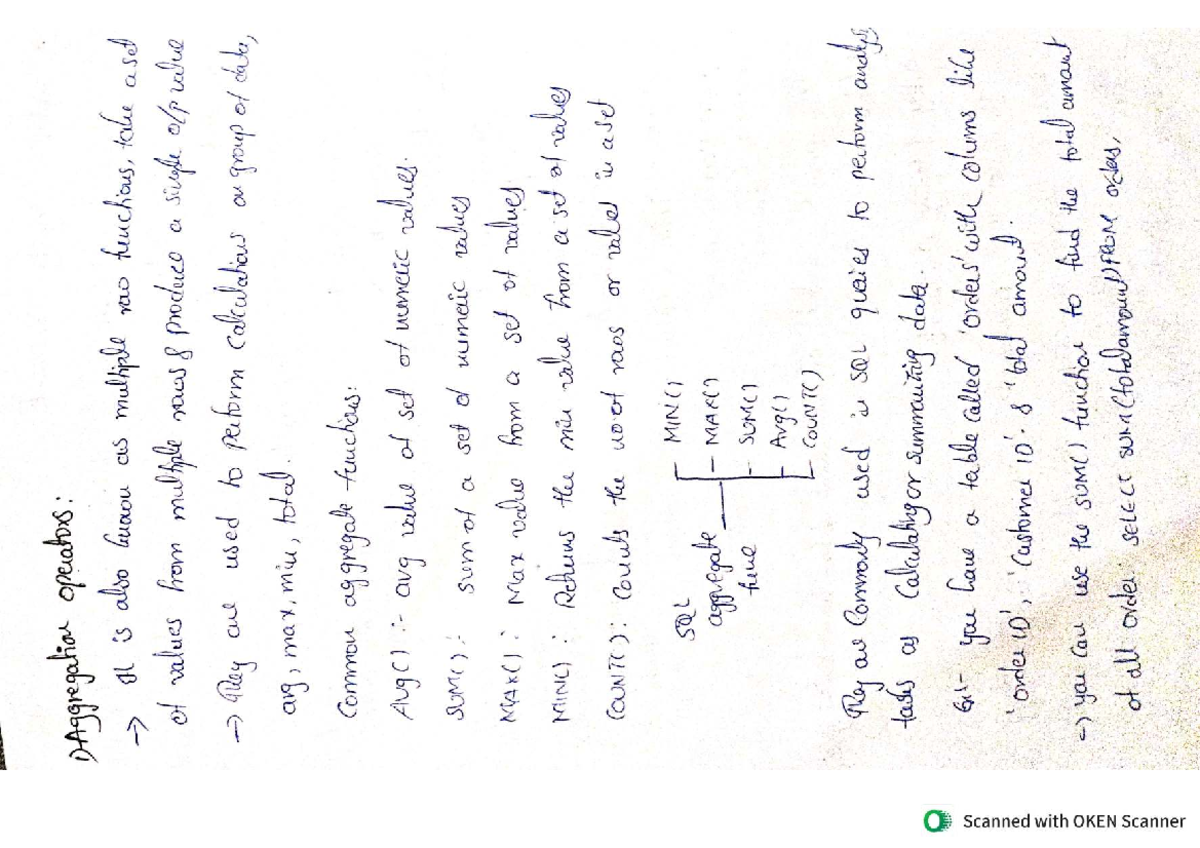 1) Aggregation operators:
→ It is also known as multiple row functions, take a set
of values from multiple rows & produce a single o/p value
→ They are used to perform calculations on group of data,
avg, max, min, total.
Common aggregate functions:
Avg() :- avg value of set of numeric values.
SUM() :- sum of a set of numeric values
MAX() : Max value from a set of values
MIN() : Returns the min value from a set of values
COUNT() : Counts the no. of rows or valed in a set
SQL
aggregate
func
MIN()
MAX()
SUM()
Avg()
COUNT()
They are Commonly used in SQL queries to perform analysis
tasks as Calculating or summarizing data.
Ex:- you have a table called 'orders' with columns like
'order ID', 'Customer ID' & 'total amount'.
=> you can use the SUM() function to find the total amount
of all order: SELECT SUM(totalamount) FROM orders,
Scanned with OKEN Scanner